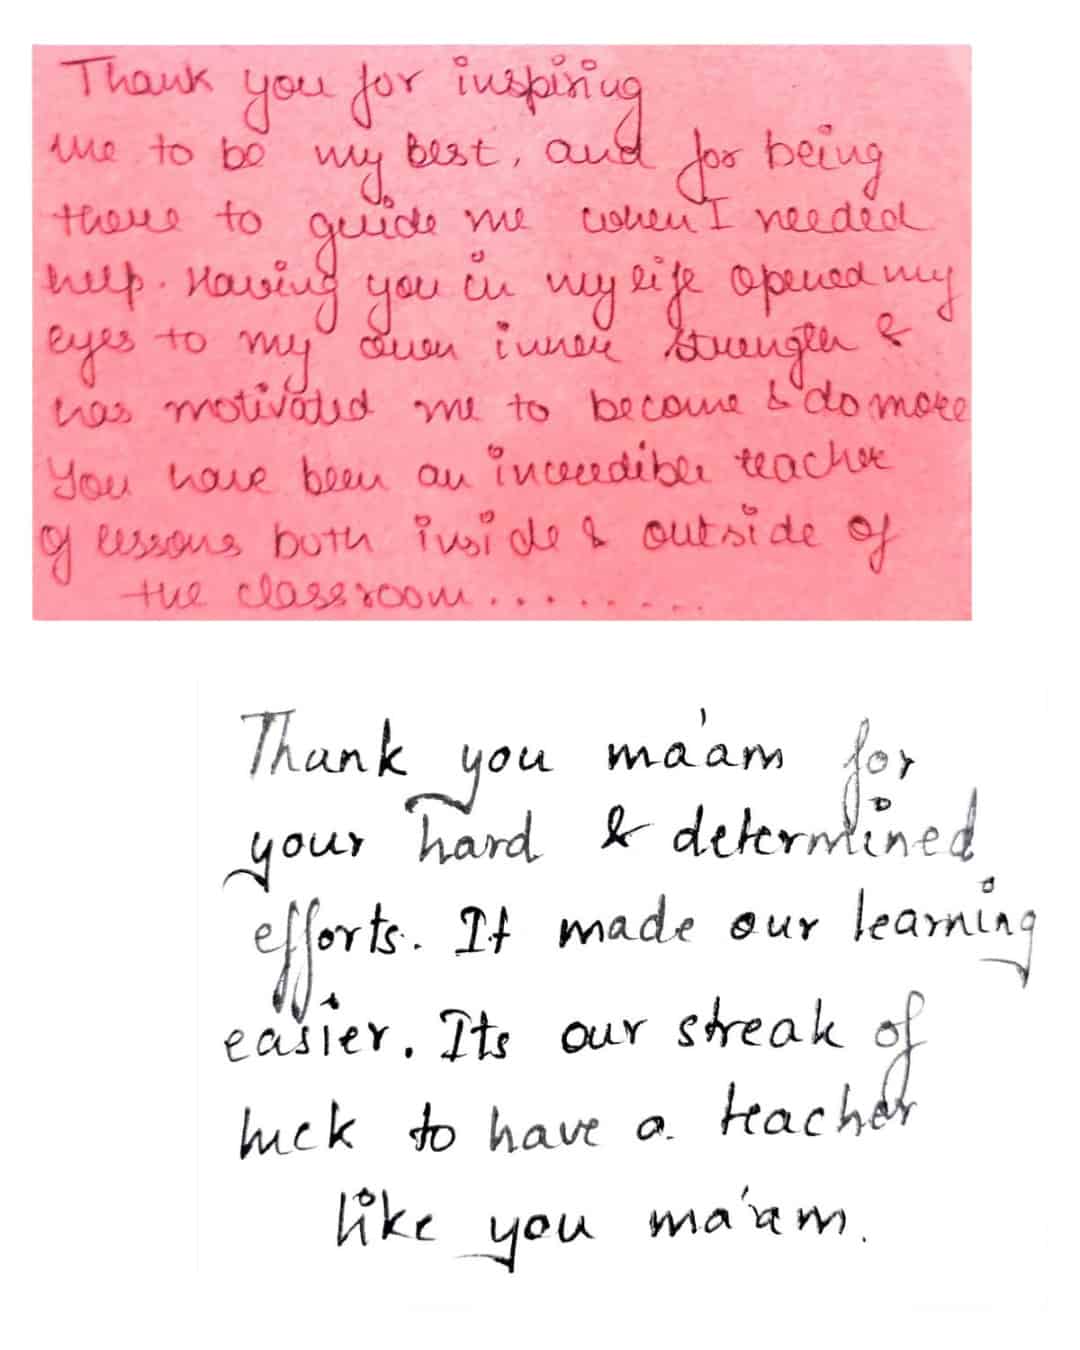 Thank you for inspiring
me to be my best, and for being
there to guide me when I needed
help. Having you in my life opened my
eyes to my own inner strength &
has motivated me to become & do more
You have been an incredible teacher
of lessons both inside & outside of
the classroom........
Thank you ma'am for
your hard & determined
efforts. It made our learning
easier. Its our streak of
luck to have a teacher
like you ma'am.